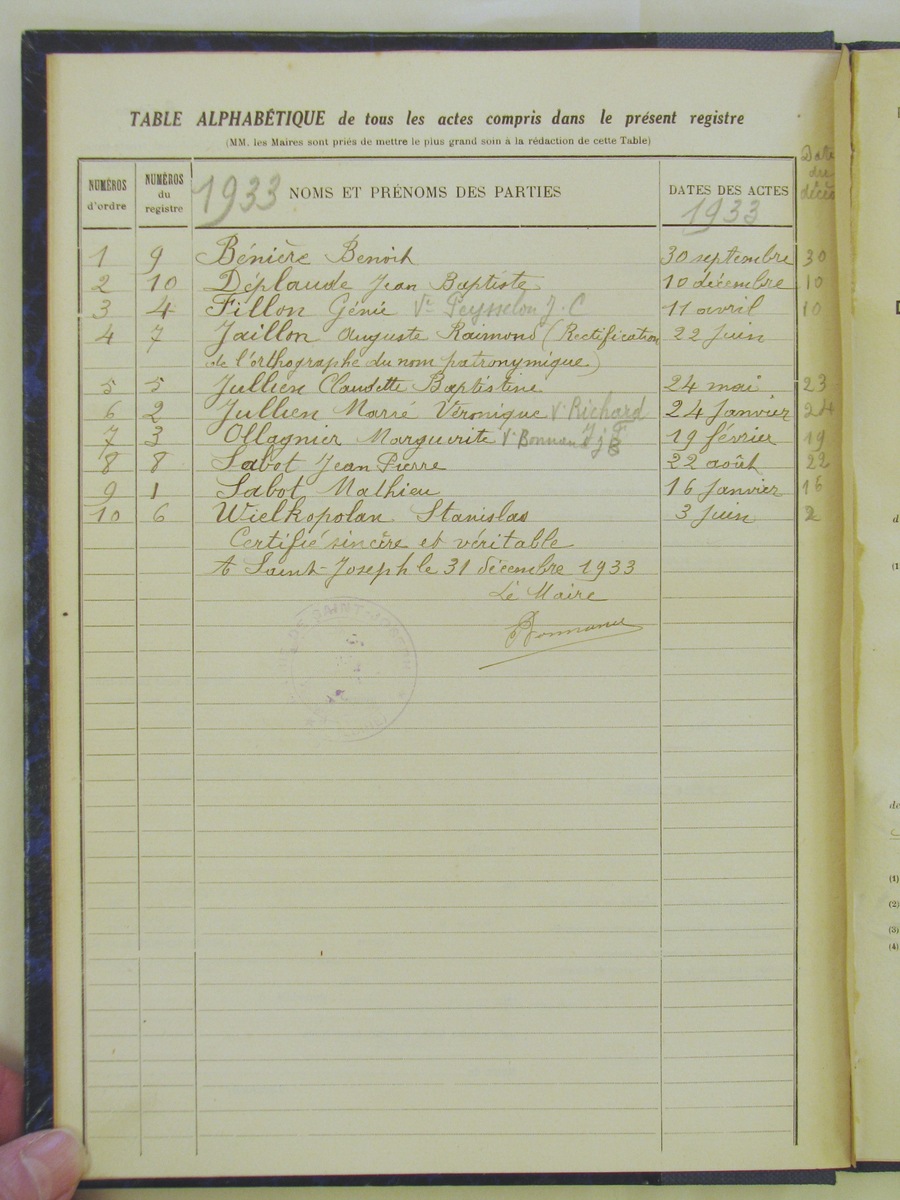 TABLE ALPHABÉTIQUE de tous les actes compris dans le présent registre
(MM. les Maires sont priés de mettre le plus grand soin à la rédaction de cette Table)
NUMÉROS d'ordre NUMÉROS du registre 1933 NOMS ET PRÉNOMS DES PARTIES DATES DES ACTES 1933 Date du décès
1 9 Bénière Benoit 30 septembre 30
2 10 Déplaude Jean Baptiste 10 décembre 10
3 4 Fillon Génie Ve Peysselon J. C 11 avril 10
4 7 Jaillon Auguste Raimond (Rectification 22 juin
de l'orthographe du nom patronymique)
5 5 Jullien Claudette Baptistine 24 mai 23
6 2 Jullien Marie Véronique V. Richard 24 Janvier 24
7 3 Ollagnier Marguerite V. 19 février 19
8 8 Sabot Jean Pierre 22 août 22
9 1 Sabot Mathieu 16 Janvier 16
10 6 Wielkopolan Stanislas 3 juin 2
Certifié sincère et véritable
A Saint-Joseph le 31 décembre 1933
Le Maire
DE SAINT-JOSEPH